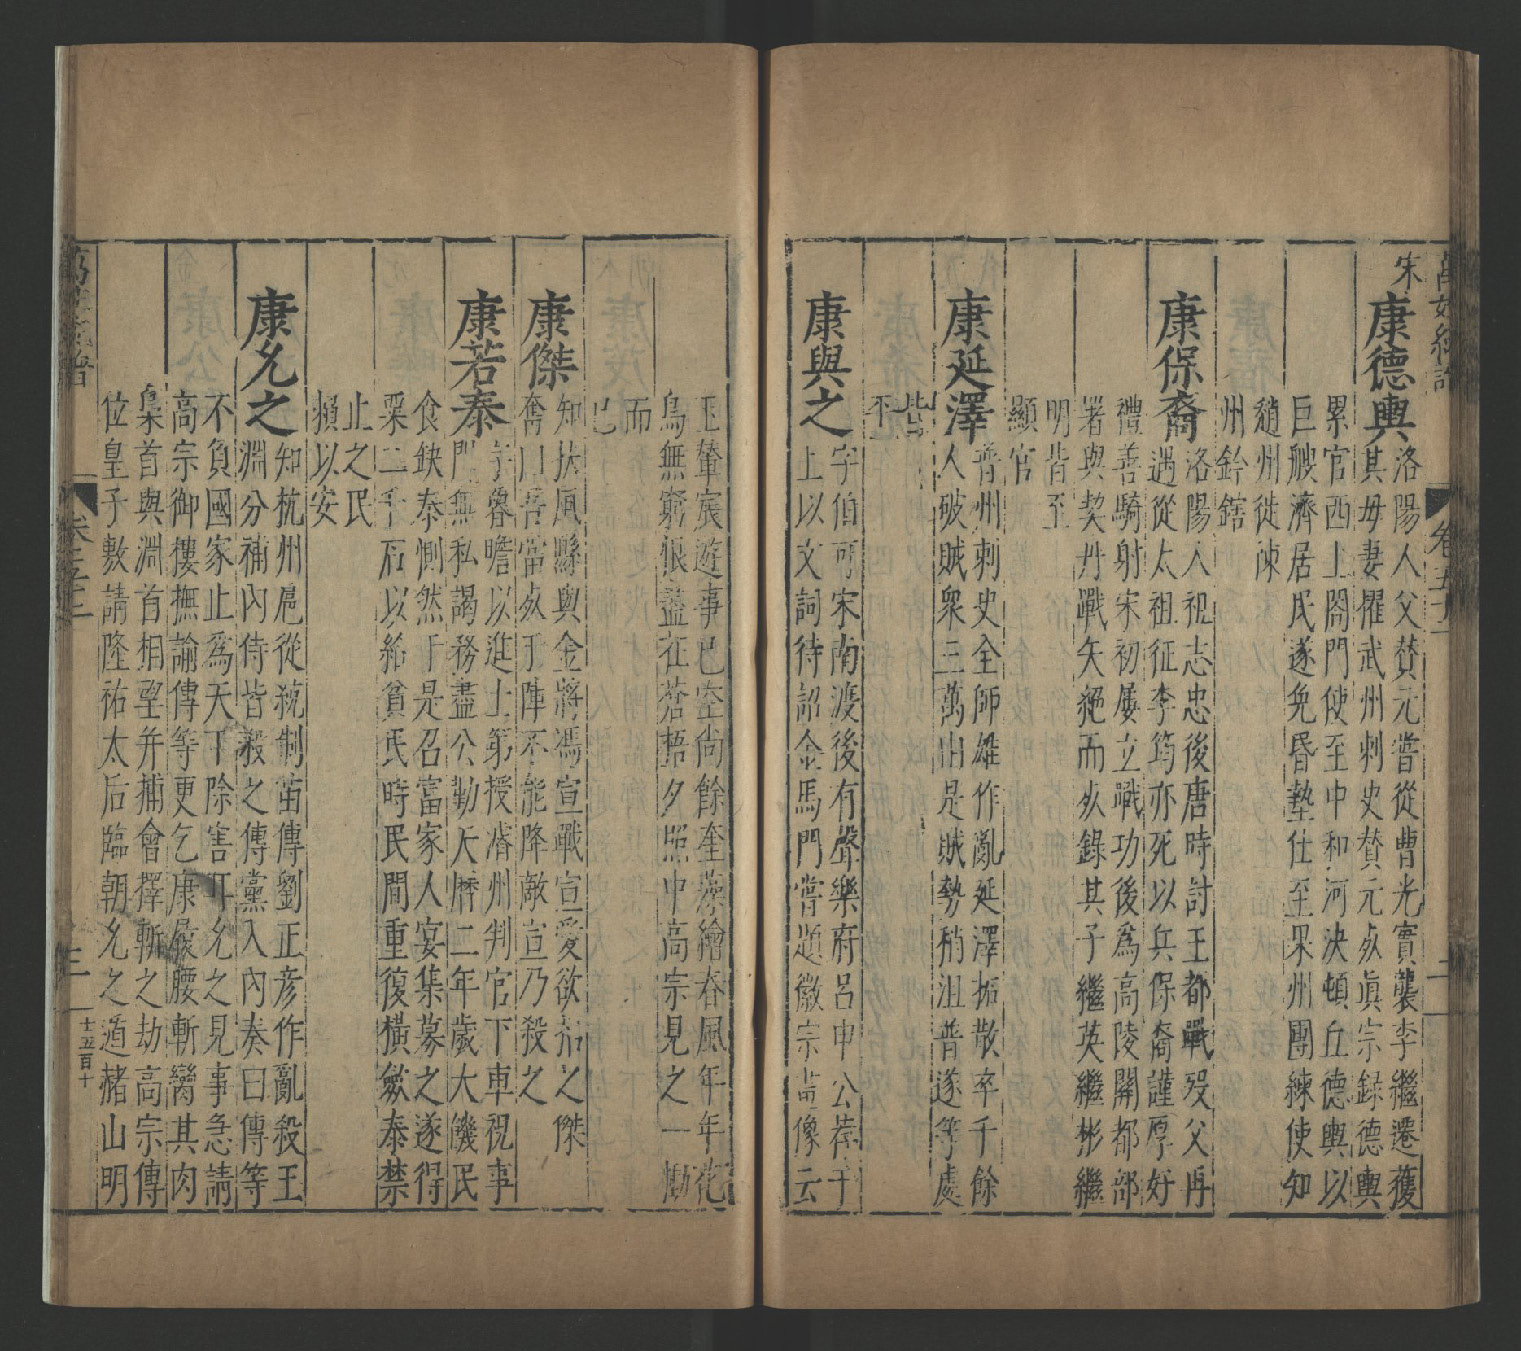 宋
康德輿
洛陽人父贊元嘗從曹光實襲李繼遷獲
其母妻擢武州刺史贊元死眞宗錄德輿
累官西上閤門使至中和河決頓丘德輿以
巨艘濟居民遂免昏墊仕至果州團練使知
趙州徙陳
州鈐轄
康保裔
洛陽人祖志忠後唐時討王都戰歿父再
遇從太祖征李筠亦死以兵保裔謹厚好
禮善騎射宋初屢立戰功後爲高陵關都部
署與契丹戰矢絕而死錄其子繼英繼彬繼
明皆至
顯官
康延澤
普州刺史全師雄作亂延澤拓散卒千餘
人破賊衆三萬由是賊勢稍沮普遂等處
皆
平
康與之
字伯可宋南渡後有聲樂府呂申公薦于
上以文詞待詔金馬門嘗題徽宗畫像云
玉輦宸遊事已空尚餘奎藻繪春風年年花
鳥無窮恨盡在蒼梧夕照中高宗見之一慟
而
已
康傑
知扶風縣與金將馮宣戰宣愛欲招之傑
奮曰吾當死于陣不能降敵宣乃殺之
康若泰
字魯瞻以進士第授濬州判官下車視事
門無私謁務盡公勤天曆二年歲大饑民
食缺泰惻然于是召富家人宴集募之遂得
粟二千石以給貧民時民間重復橫斂泰禁
止之民
賴以安
康允之
知杭州扈從統制苗傳劉正彦作亂殺王
淵分捕內侍皆殺之傳黨入內奏曰傳等
不負國家止爲天下除害耳允之見事急請
高宗御樓撫諭傳等更乞康履腰斬臠其肉
梟首與淵首相望并捕曾擇斬之劫高宗傳
位皇子敷請隆祐太后臨朝允之遁赭山明
三